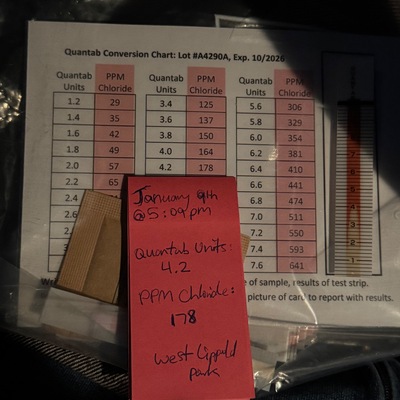 Quantab Conversion Chart: Lot #A4290A, Exp. 10/2026
Quantab Units PPM Chloride Quantab Units PPM Chloride Quantab Units PPM Chloride
1.2 29 3.4 125 5.6 306
1.4 35 3.6 137 5.8 329
1.6 42 3.8 150 6.0 354
1.8 49 4.0 164 6.2 381
2.0 57 4.2 178 6.4 410
2.2 65 6.6 441
2.4 6.8 474
2.6 7.0 511
7.2 550
7.4 593
7.6 641
of sample, results of test strip.
picture of card to report with results.
January 9th
@ 5:09pm
Quantab Units:
4.2
PPM Chloride:
178
West Lippold
park